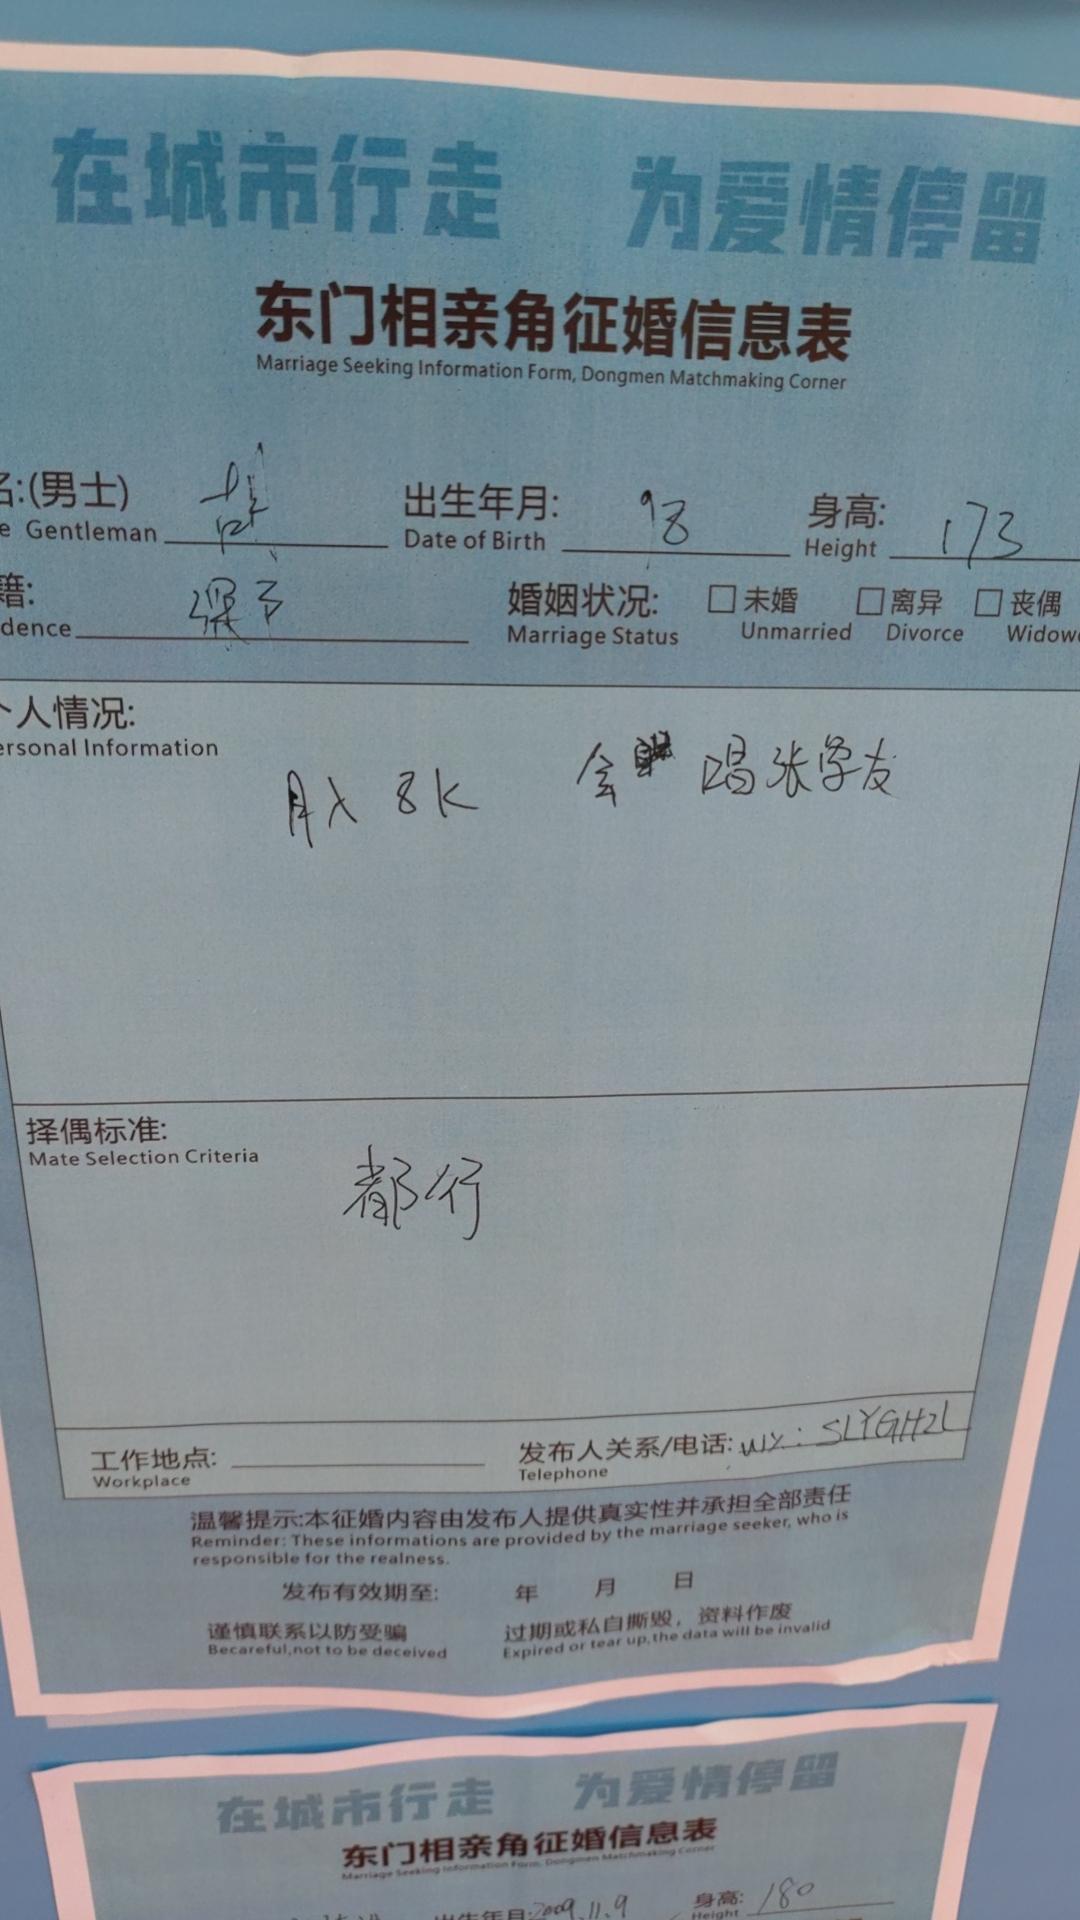 在城市行走 为爱情停留
东门相亲角征婚信息表
Marriage Seeking Information Form, Dongmen Matchmaking Corner
名:(男士) 出生年月: 98 身高: 173
e Gentleman Date of Birth Height
籍: 婚姻状况: □未婚 □离异 □丧偶
dence Marriage Status Unmarried Divorce Widowe
个人情况:
ersonal Information
月入 8K 会 唱张学友
择偶标准:
Mate Selection Criteria
都行
工作地点: 发布人关系/电话: WX: SLYGHZL
Workplace Telephone
温馨提示:本征婚内容由发布人提供真实性并承担全部责任
Reminder: These informations are provided by the marriage seeker, who is
responsible for the realness.
发布有效期至: 年 月 日
谨慎联系以防受骗 过期或私自撕毁，资料作废
Becareful,not to be deceived Expired or tear up,the data will be invalid
在城市行走 为爱情停留
东门相亲角征婚信息表
Marriage Seeking Information Form, Dongmen Matchmaking Corner
出生年月:2009.11.9 身高: 180
Height